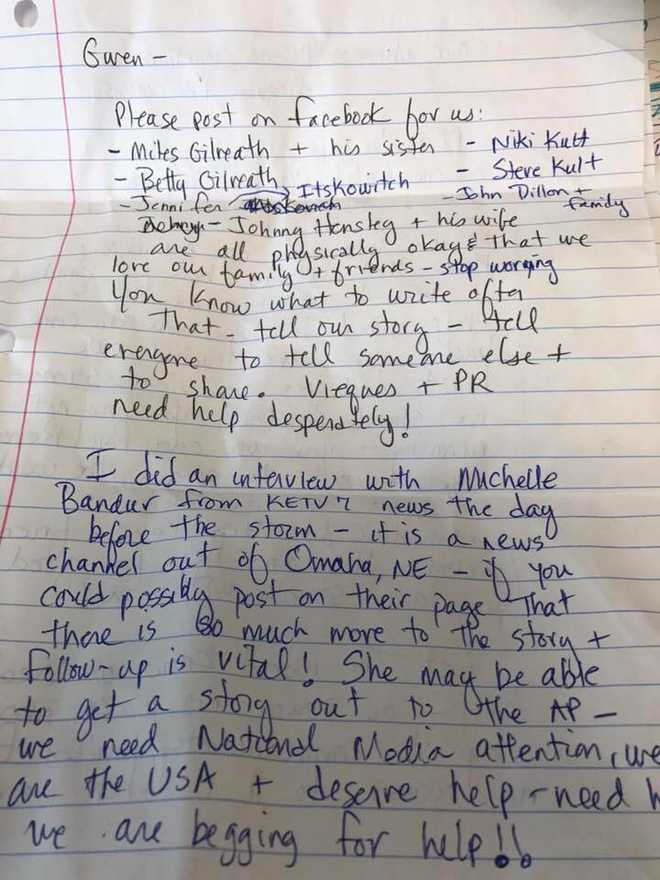 Gwen -
Please post on facebook for us:
- Miles Gilreath + his sister - Niki Kult
- Betty Gilreath - Steve Kult
- Jennifer Itskowitch - John Dillon + family
- Johnny Hensley + his wife
are all physically okay & that we
love our family + friends - stop worrying
You know what to write after
That - tell our story - tell
everyone to tell someone else +
to share. Vieques + PR
need help desperately!
I did an interview with Michelle
Bandur from KETV 7 news the day
before the storm - it is a news
channel out of Omaha, NE - if you
could possibly post on their page that
there is so much more to the story +
follow-up is vital! She may be able
to get a story out to the AP -
we need National Media attention, we
are the USA + deserve help - need h
we are begging for help!!